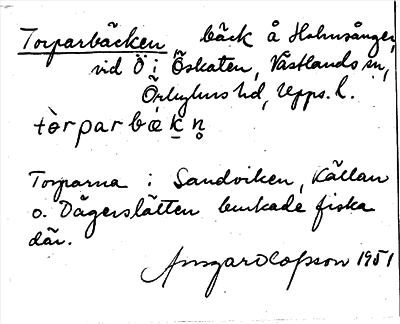 Torparbäcken bäck å Holmsånger,
vid Ö i Öskaten, Västlands sn,
Örbyhus hd, Upps. l.
tòrparbækn̥
Torparna i Sandviken, Källan
o. Dågerslätten brukade fiska
där.
Ansgar Olofsson 1951